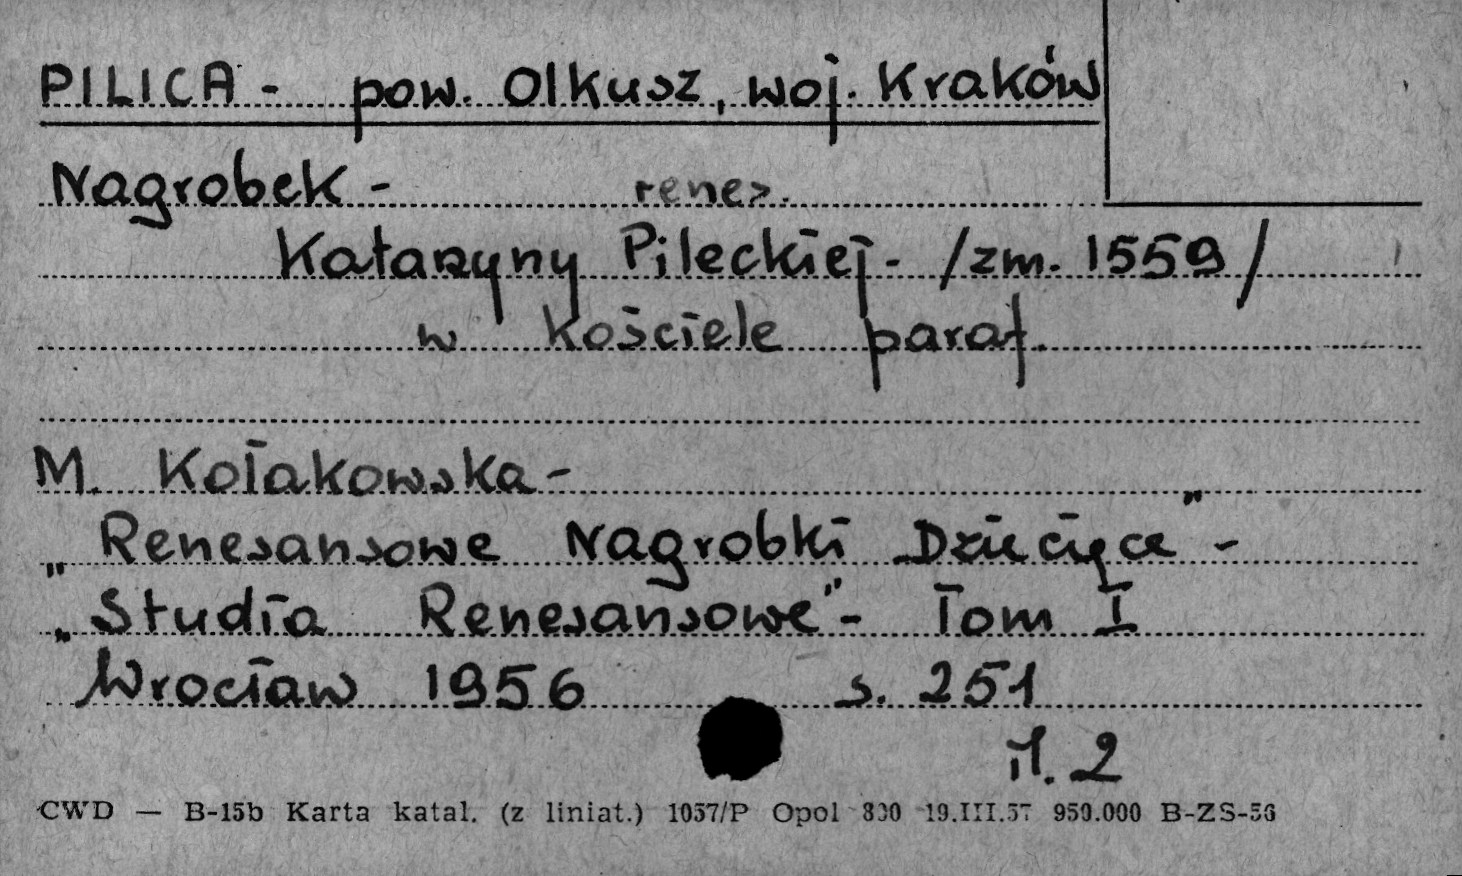 PILICA - pow. Olkusz, woj. Kraków
Nagrobek - renes.
Katarzyny Pileckiej - /zm. 1559/
w kościele paraf.
M. Kołakowska -
„Renesansowe Nagrobki Dziecięce" -
„Studia Renesansowe" - Tom I
Wrocław 1956 s. 251
il. 2
CWD — B-15b Karta katal. (z liniat.) 1057/P Opol 800 19.III.57 950.000 B-ZS-56